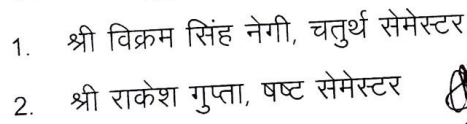 1. श्री विक्रम सिंह नेगी, चतुर्थ सेमेस्टर
2. श्री राकेश गुप्ता, षष्ट सेमेस्टर